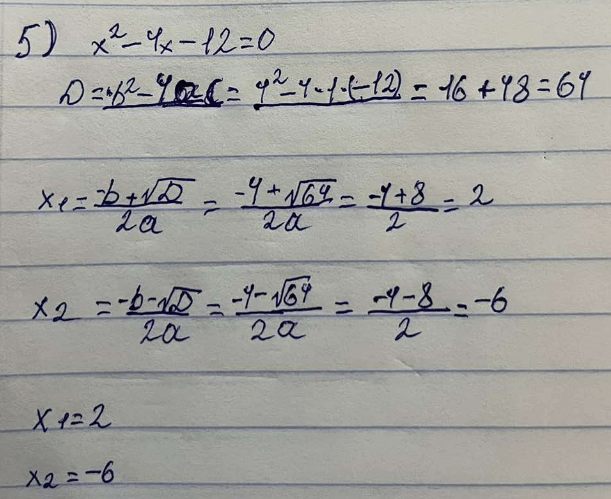 5) x² - 4x - 12 = 0
D = b² - 4ac = 4² - 4 · 1 · (-12) = 16 + 48 = 64
x₁ = (-b + √D)/2a = (-4 + √64)/2a = (-4 + 8)/2 = 2
x₂ = (-b - √D)/2a = (-4 - √64)/2a = (-4 - 8)/2 = -6
x₁ = 2
x₂ = -6